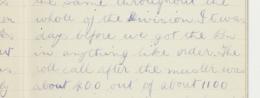 the same throughout the
whole of the Division. It was
days before we got the Bn
in anything like order. The
roll call after the muster was
about 400 out of about 1100